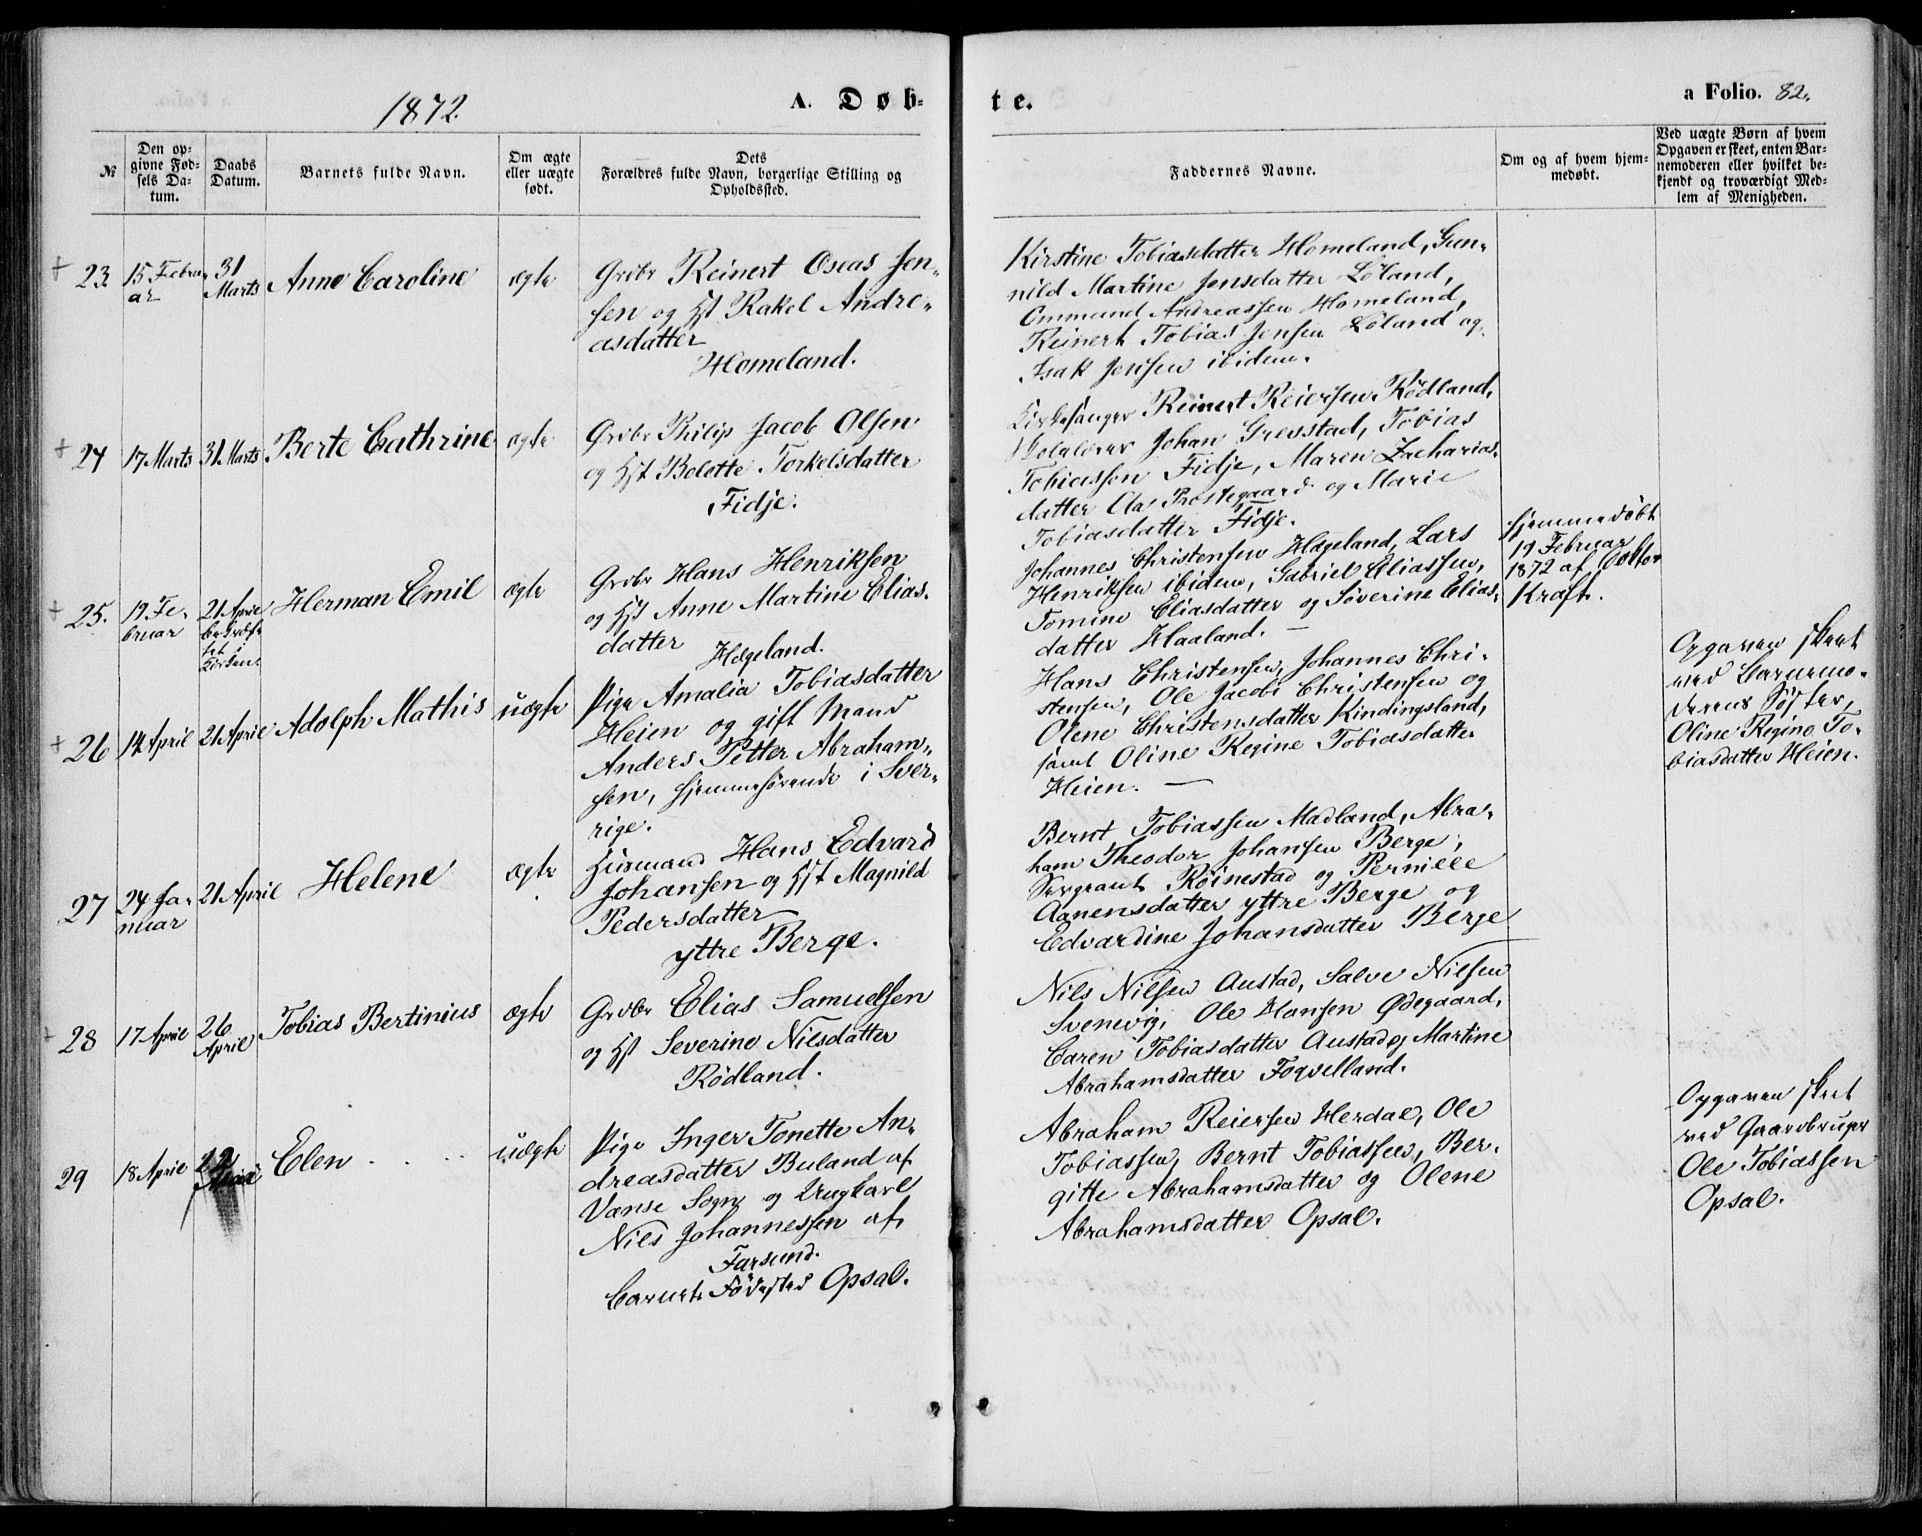 1872.
A. Døb-
te.
a Folio. 82.
№
Den op-
givne Fød-
sels Da-
tum.
Daabs
Datum.
Barnets fulde Navn.
Om ægte
eller uægte
født.
Dets
Forældres fulde Navn, borgerlige Stilling og
Opholdssted.
Faddernes Navne.
Om og af hvem hjem-
medøbt.
Ved uægte Børn af hvem
Opgaven er skeet, enten Bar-
nemoderen eller hvilket be-
kjendt og troværdigt Med-
lem af Menigheden.
+ 23
15 Febru-
ar
31
Marts
Anne Caroline
ægte
Grdbr Reinert Oseas Jen-
sen og Hst Rakel Andre-
asdatter
Homeland.
Kirstine Tobiasdatter Homeland, Gun-
nild Martine Jensdatter Løland,
Ommund Andreassen Homeland,
Reinert Tobias Jensen Løland og
Isak Jensen ibidem.
+ 24
17 Marts
31 Marts
Berte Cathrine
ægte
Grdbr Philip Jacob Olsen
og Hst Bolette Torkelsdatter
Fidje.
Kirkesanger Reinert Reiersen Rødland,
Johan Gresstad, Tobias
Tobiassen Fidje, Maren Zacharias-
datter Prostegaard og Marie
Tobiasdatter Fidje.
+ 25.
19 Fe-
bruar
21 April
Herman Emil
ægte
Grdbr Hans Henriksen
og Hst Anne Martine Elias-
datter
Hægeland.
Johannes Christensen Hægeland, Lars
Henriksen ibidem, Gabriel Eliassen,
Tomine Eliasdatter og Søverine Elias-
datter Haaland. —
Hjemmedøbt
19 Februar
1872 af Doktor
Kraft.
+ 26
14 April
21 April
Adolph Mathis
uægte
Pige Amalia Tobiasdatter
Heien og gift Mand
Anders Petter Abraham-
sen, hjemmehørende i Sver-
rige.
Hans Christensen, Johannes Chri-
stensen, Ole Jacob Christensen og
Olene Christensdatter Kindingsland,
samt Oline Regine Tobiasdatter
Heien. —
Opgaven skeet
ved Barnemo-
derens Søster,
Oline Regine To-
biasdatter Heien.
27
24 Ja-
nuar
21 April
Helene
ægte
Husmand Hans Edvard
Johansen og Hst Magnild
Pedersdatter
yttre Berge.
Bernt Tobiassen Madland, Abra-
ham Theodor Johansen Berge,
Sergeant Røinestad og Pernille
Aanensdatter yttre Berge og
Edvardine Johansdatter Berge
28
17 April
26
April
Tobias Bertinius
ægte
Grdbr Elias Samuelsen
og Hst Severine Nilsdatter
Rødland.
Nils Nilsen Austad, Salve Nilsen
Svenevig, Ole Hansen Ødegaard,
Caren Tobiasdatter Austad og Martine
Abrahamsdatter Foqvelland.
29
18 April
Elen
uægte
Pige Inger Tonette An-
dreasdatter Buland af
Vanse Sogn og Ungkarl
Nils Johannessen af
Farsund.
Barnets Fødested Opsal.
Abraham Reiersen Herdal, Ole
Tobiassen, Bernt Tobiassen, Ber-
gitte Abrahamsdatter og Olene
Abrahamsdatter Opsal.
Opgaven skeet
ved Gaardbruger
Ole Tobiassen
Opsal.